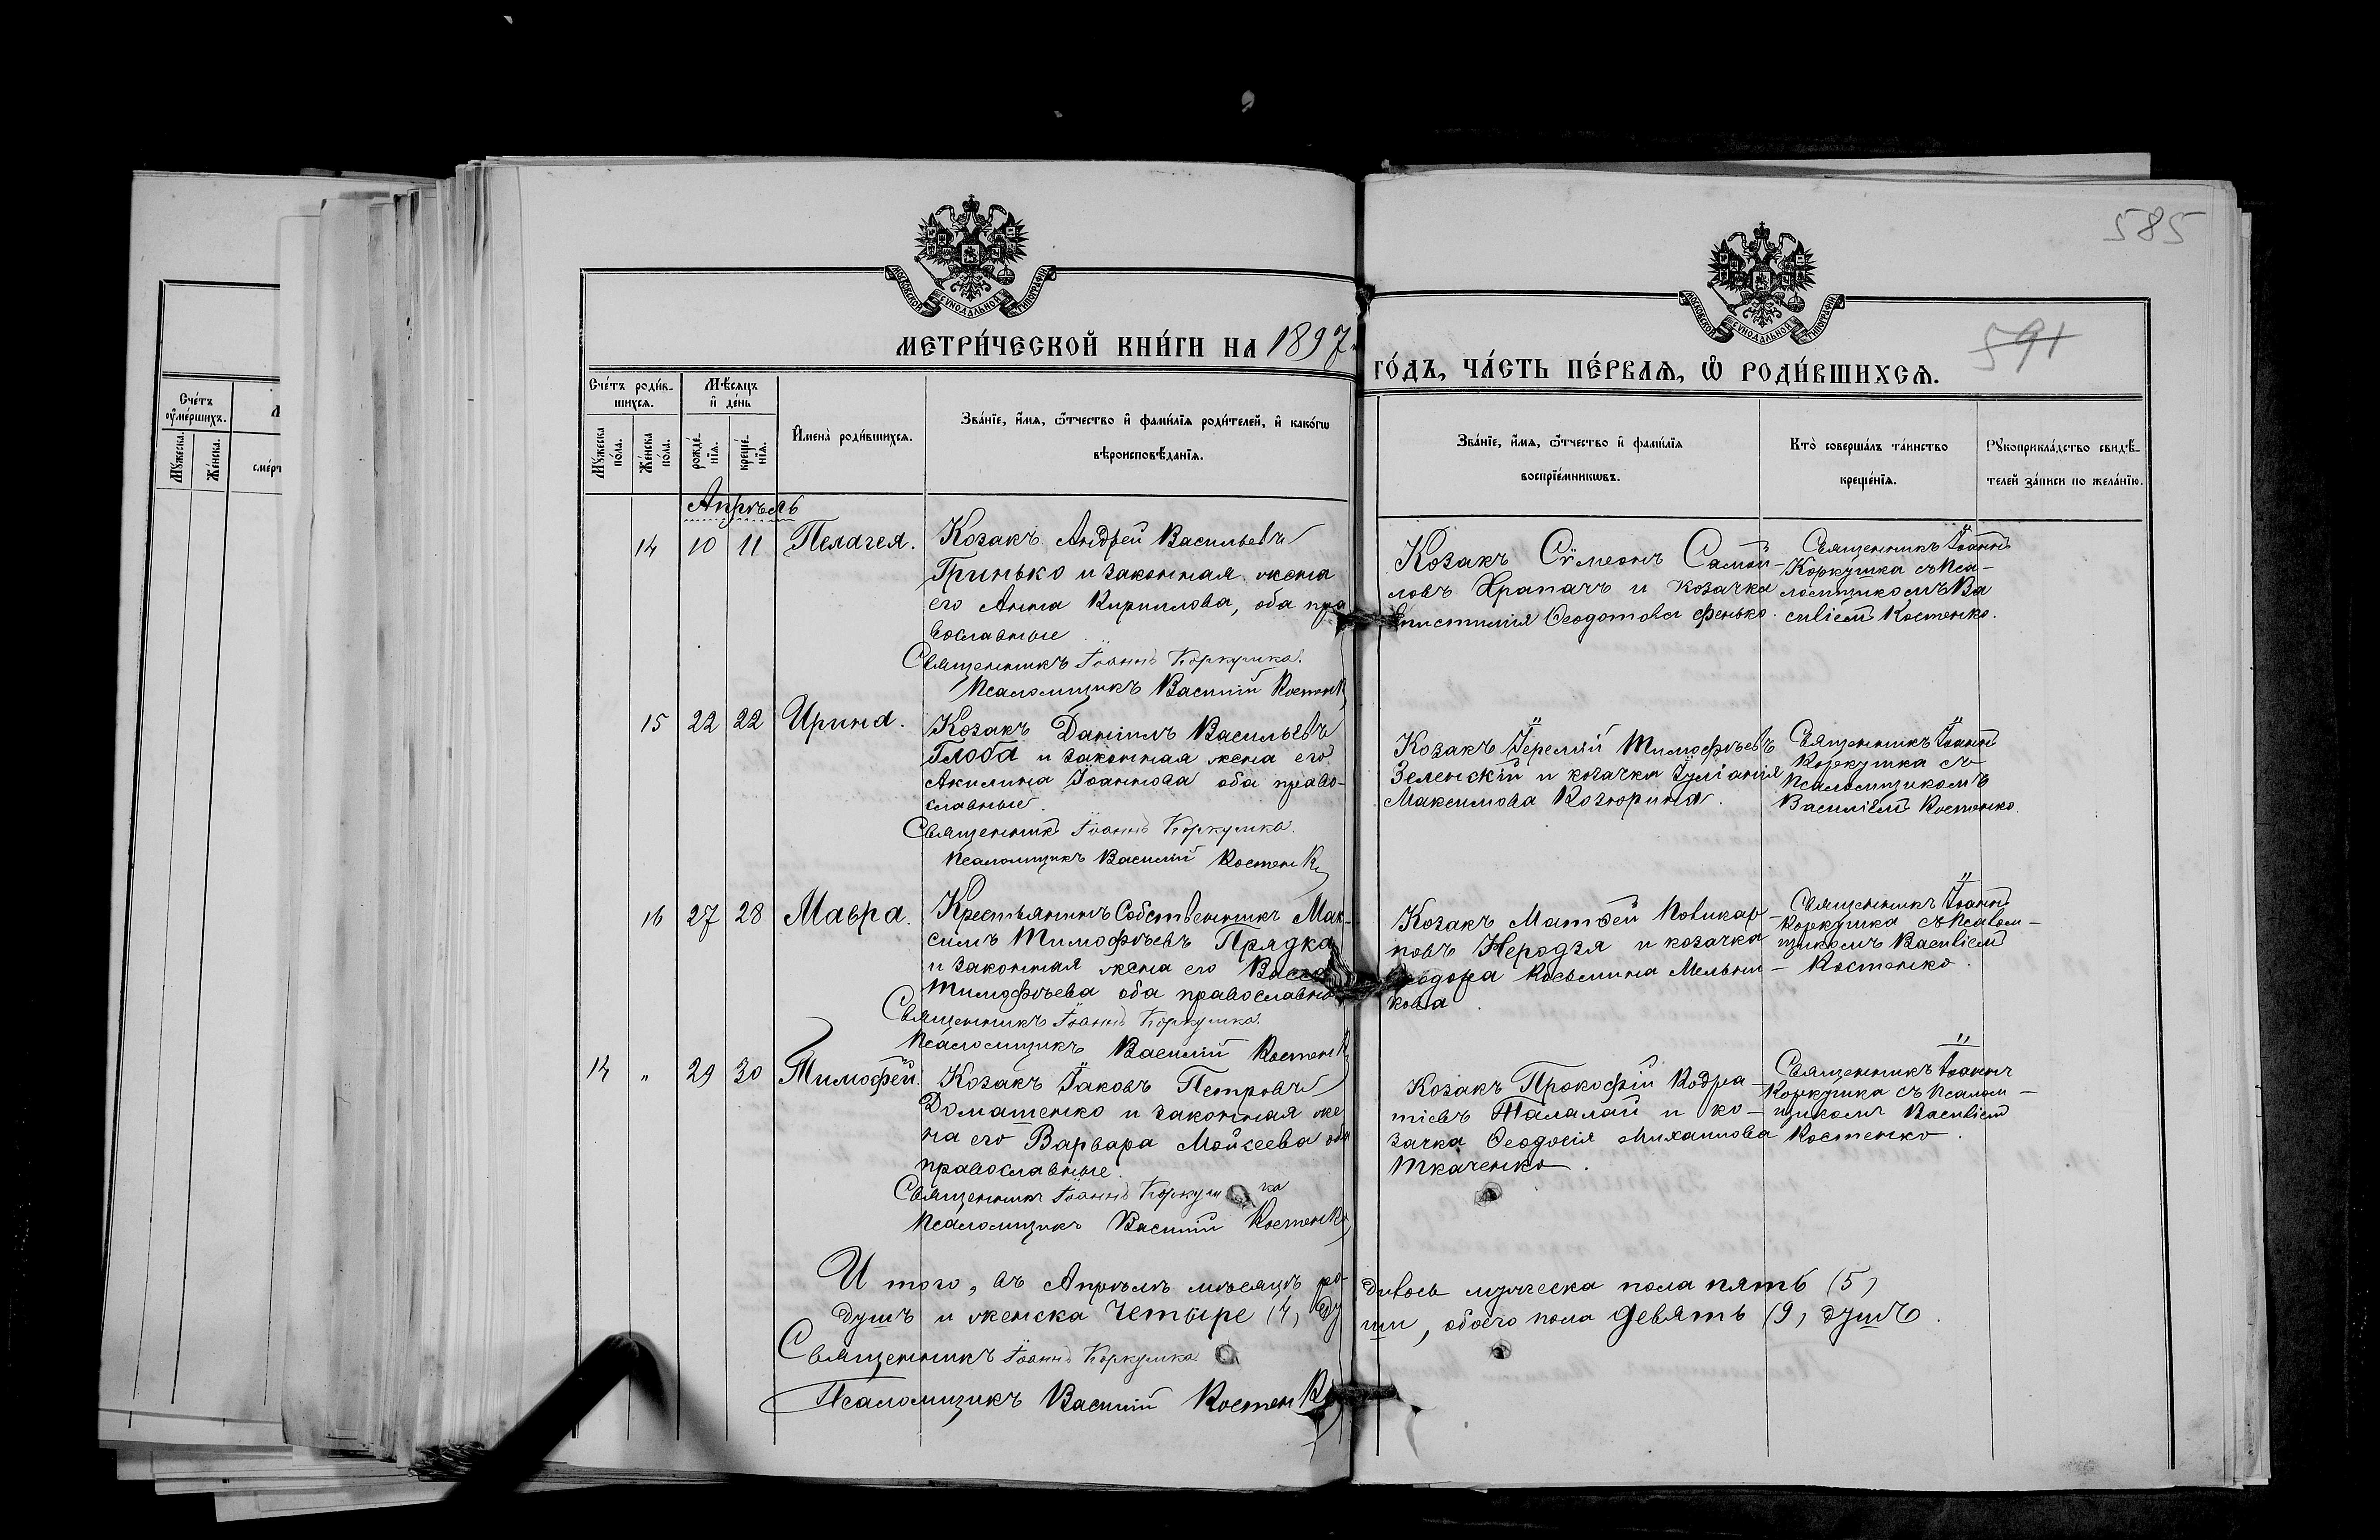 585
591
МОСКОВСКОЙ СѴНОДАЛЬНОЙ ТИПОГРАФІИ
МОСКОВСКОЙ СѴНОДАЛЬНОЙ ТИПОГРАФІИ
МЕТРИ́ЧЕСКОЙ КНИ́ГИ НА 1897
ГО́ДЪ, ЧА́СТЬ ПЕ́РВАѦ, Ѡ҆ РОДИ́ВШИХСѦ.
Сче́тъ ᲂу҆ме́ршихъ.
Мꙋ́жеска.
Же́нска.
Сче́тъ роди́в-
шихсѧ.
Мꙋ́жеска по́ла.
Же́нска по́ла.
Мѣ́сѧцъ и҆ де́нь
рожде́-
нїѧ.
креще́-
нїѧ.
И҆мена̀ роди́вшихсѧ.
Зва́нїе, и҆́мѧ, ѻ҆́тчество и҆ фами́лїѧ роди́телей, и҆ како́гѡ
вѣроисповѣ́данїѧ.
Зва́нїе, и҆́мѧ, ѻ҆́тчество и҆ фами́лїѧ
воспрїе́мникѡвъ.
Кто̀ соверша́лъ та́инство
креще́нїѧ.
Рꙋкоприкла́дство свидѣ́-
телей за́писи по жела́нїю.
Апрѣль
14 10 11 Пелагея.
Козакъ Андрей Васильевъ
Гринько и законная жена
его Анна Кириллова, оба пра
вославные
Священникъ Іоаннъ Коркушка.
Псаломщикъ Василій Костенко
Козакъ Сѵмеонъ Самой-
ловъ Храпачъ и козачка
Епистимія Ѳеодотова Фенько.
Священникъ Іоаннъ
Коркушка съ Пса-
ломщикомъ Ва
силіемъ Костенко.
15 22 22 Ирина.
Козакъ Даніилъ Васильевъ
Глоба и законная жена его
Акилина Іоаннова оба право-
славные.
Священникъ Іоаннъ Коркушка.
Псаломщикъ Василій Костенко
Козакъ Іеремій Тимофѣевъ
Зеленскій и козачка Іуліанія
Максимова Козюрина.
Священникъ Іоаннъ
Коркушка съ
Псаломщикомъ
Василіемъ Костенко.
16 27 28 Мавра.
Крестьянинъ Собственникъ Мак-
симъ Тимофѣевъ Прядка
и законная жена его Васса
Тимофѣева оба православные
Священникъ Іоаннъ Коркушка.
Псаломщикъ Василій Костенко
Козакъ Матѳей Поликар-
повъ Неродзя и козачка
Ѳеодора Косьмина Мельни-
кова.
Священникъ Іоаннъ
Коркушка съ Псалом-
щикомъ Василіемъ
Костенко.
14 " 29 30 Тимофей.
Козакъ Іаковъ Петровъ
Доматенко и законная же
на его Варвара Мойсеева оба
православные.
Священникъ Іоаннъ Коркушка
Псаломщикъ Василій Костенко
Козакъ Прокофій Кодра-
тіевъ Талалай и ко-
зачка Ѳеодосія Михаилова
Ткаченко.
Священникъ Іоаннъ
Коркушка съ Псалом-
щикомъ Василіемъ
Костенко.
И того, въ Апрѣлѣ мѣсяцѣ ро-дилось мужеска пола пять (5)
душъ и женска четыре (4) ду ши, обоего пола девять (9) душъ.
Священникъ Іоаннъ Коркушка
Псаломщикъ Василій Костенко